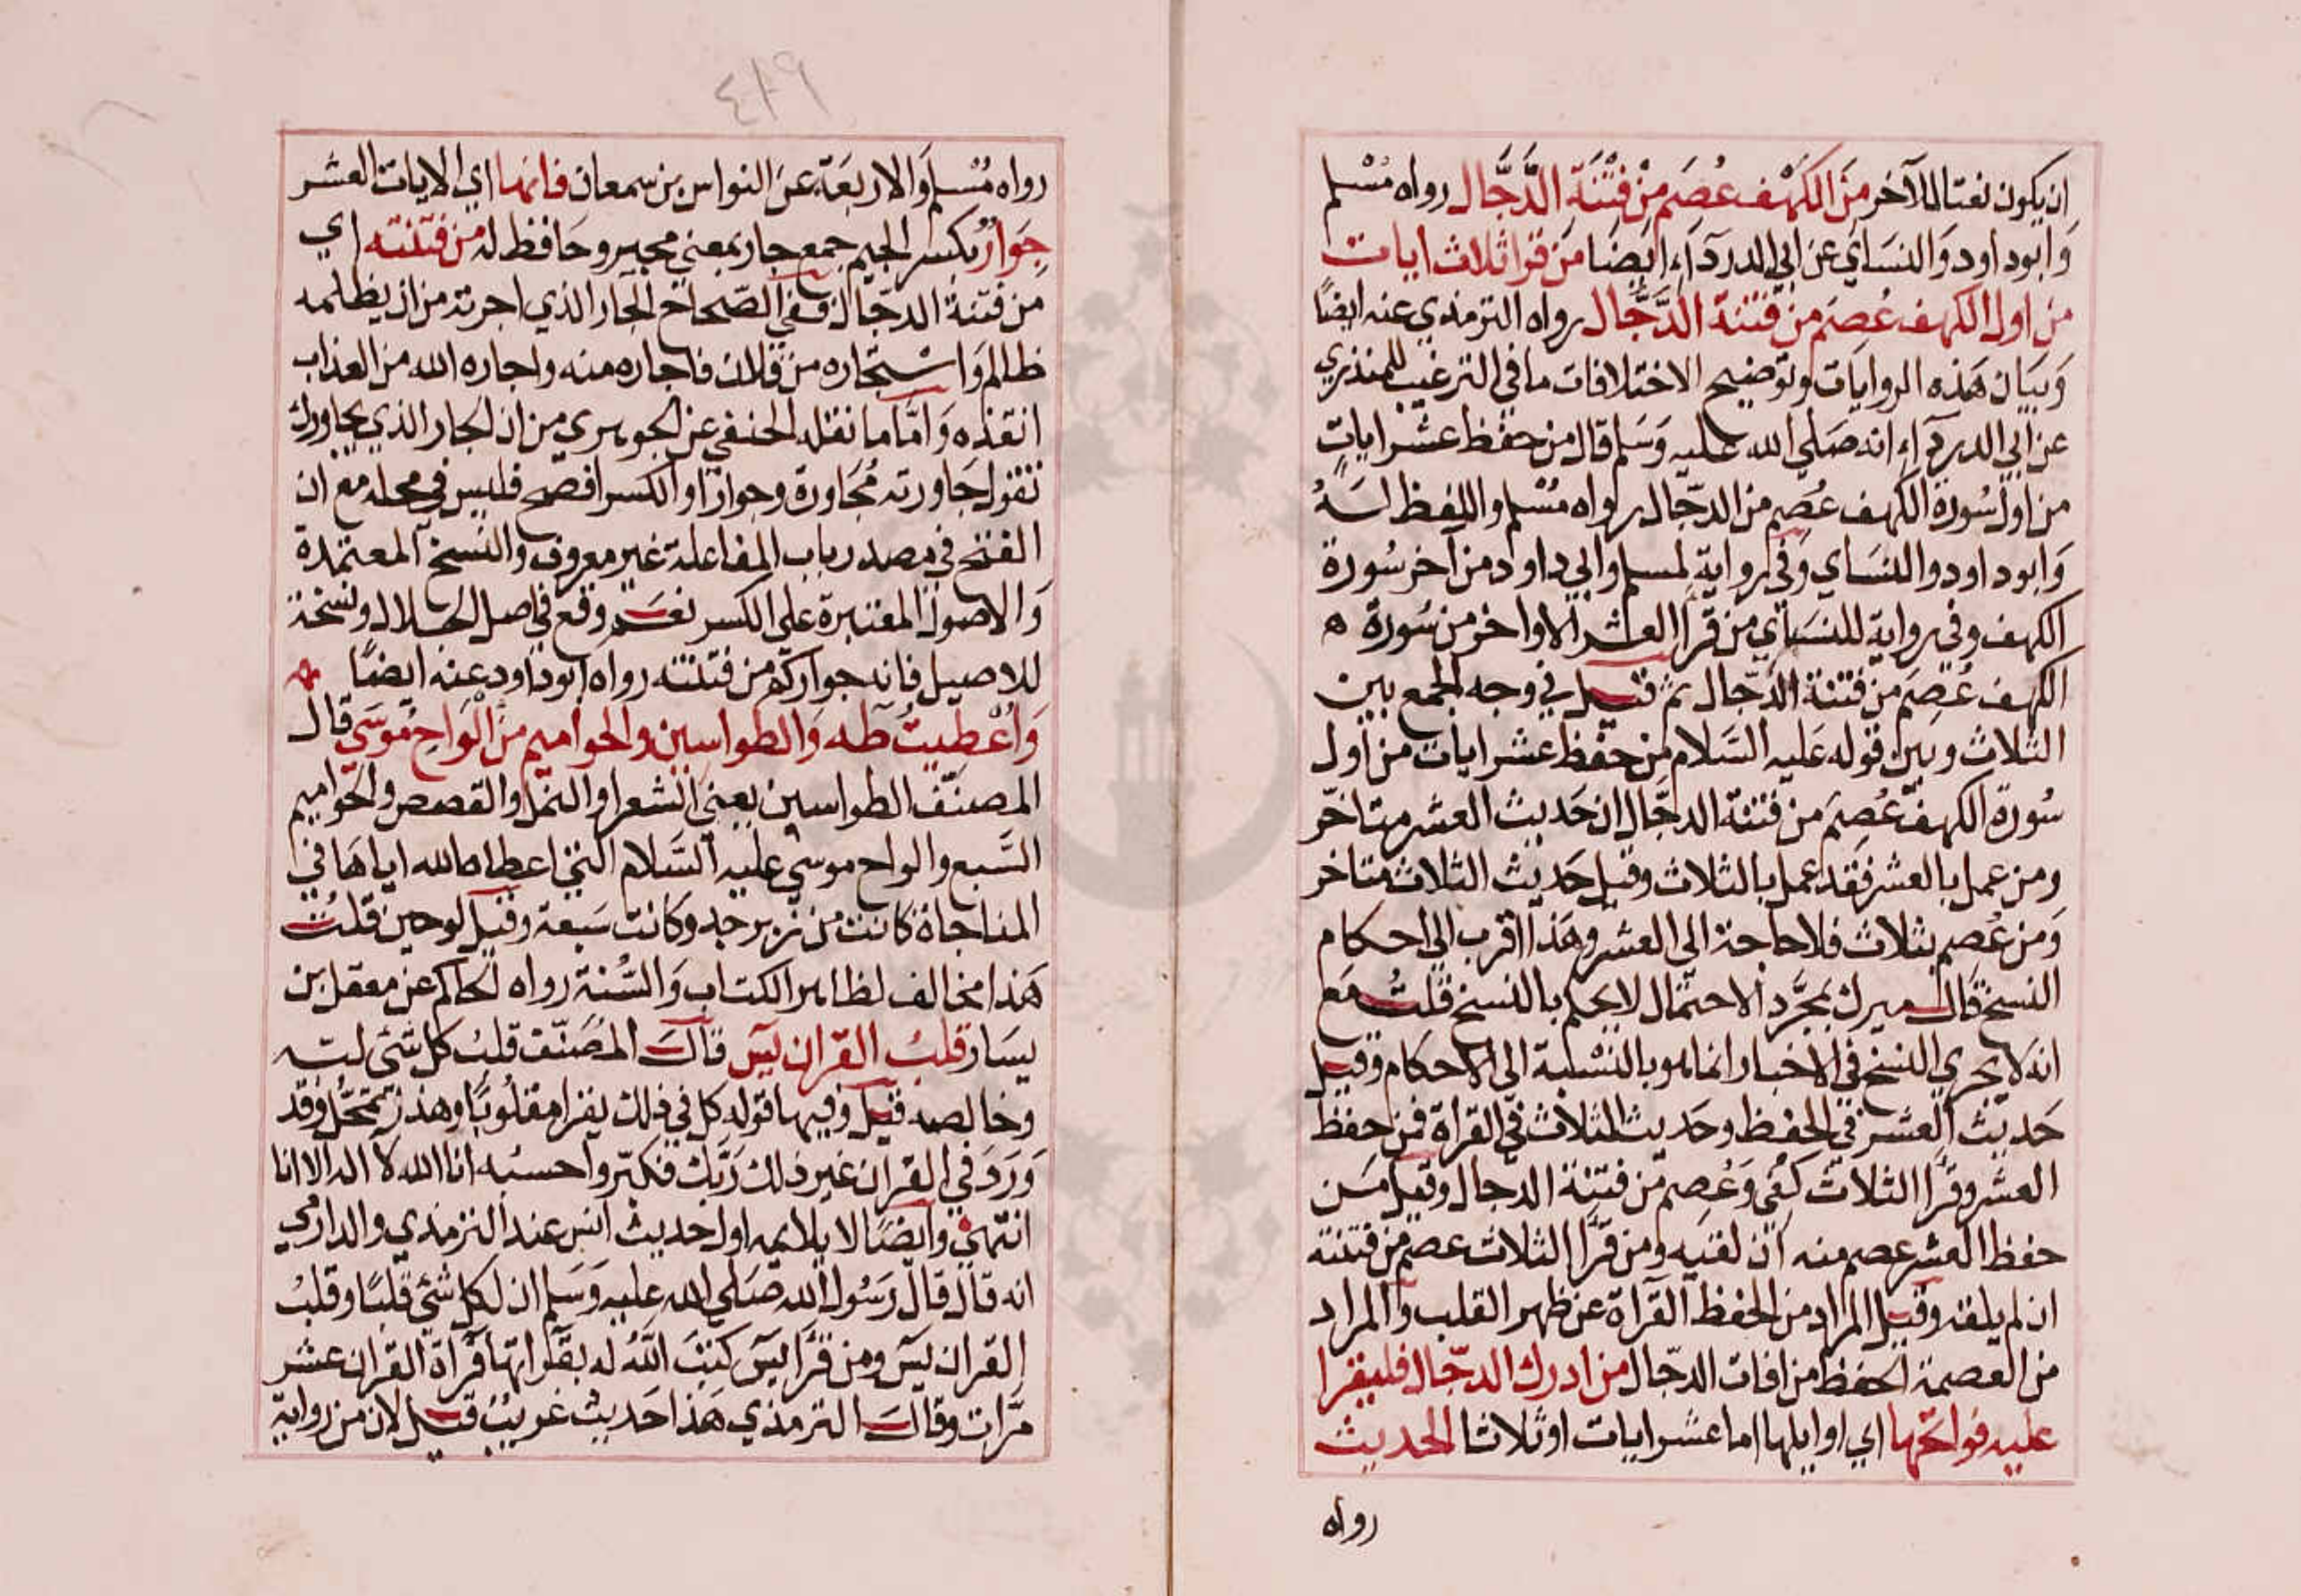 ان يكون نعتا للآخر من الكهف عُصِمَ مِنْ فِتْنَة الدَّجَّال رواه مُسْلم
وَابود اود وَالنسَاي عن ابي الدردَآءِ ايضَا مَن قرا ثلاث ايات
من اول الكهف عُصِمَ من فتنة الدَّجَّال رواه الترمذي عنه ايضًا
وَبيَان هَذه الروايَات وتوضيح الاختلافات ما في الترغيب للمنذري
عن ابي الدردآءِ انه صَلي الله عليه وَسَلم قال من حفظ عشر اياتٍ
من اول سُورة الكهف عُصِم من الدجّال رواه مُسْلم واللفظ لَهُ
وَابود اود والنسَاي وَفي رواية لمسلم وابي داود من آخر سُورة
الكهف وفي رواية للنسَاي من قرأ العشر الاواخر من سُورة ه
الكهف عُصِمَ من فتنة الدجّال ثم قيل في وجه الجمع بين
الثلاث وبين قوله عَليه السَّلام من حفظ عشر ايات من اول
سُورة الكهف عُصِمَ من فتنة الدجّال ان حَديث العشر متاخّر
ومن عمل بالعشر فَقد عمل بالثلاث وقيل حَديث الثلاث متاخر
وَمن عُصِم بثلاث فلا حاجة الى العشر وهَذا اقرب الى احكام
النسخ قال ميرك بمجَرَّد الاحتمال لا يحكم بالنسخ قلتُ مَع
انه لا يجري النسخ في الاخبار انما هو بالنسْبة الى الاحكام وقيل
حَديث العشر في الحفظ وحَديث الثلاث في القراة فمن حفظ
العشر وقرأ الثلاث كفي وَعُصِم من فتنة الدجال وقيل مَن
حفظ العشر عصم منه ان لقيه ومن قرأ الثلاث عصم من فتنته
ان لم يلقه وقيل المراد من الحفظ القرآة عن ظهر القلب والمراد
من العصمة الحفظ من افات الدجّال من ادرك الدجّال فليقرا
عليه فواتحها اي اوايلها اما عشر ايات او ثلاثا الحديث
رواه
٤١٩
رواه مُسْلم وَالاربَعَة عن النواس بن سمعان فانها اي الايات العشر
جِوَارٌ بكسر الجيم جمع جار بمعني مجير وحَافظ له من فتنته اي
من فتنة الدجّال وفي الصّحاح الجار الذي اجرته من ان يظلمه
ظالم وَاسْتجاره من فلان فاجاره منه واجاره الله من العذاب
انقذه وَامّا ما نقله الحنفي عن الجوهري من ان الجار الذي يجاورك
تقول جَاورته مُجَاورة وجوارًا والكسر افصح فليس في محله مع ان
الفتح في مصدر باب المفاعلة غير معروف والنسخ المعتمدة
وَالاصول المعتبرة على الكسر نعَم وقع في اصل الجلال ونسخة
للاصيل فانه جواركم من فتنته رواه ابوداود عنه ايضًا
وَاُعْطِيتُ طه وَالطواسين والحواميم مِنَ الْوَاحِ مُوسَي قال
المصنّف الطواسين يعني الشعرا والنمل والقصص والحَواميم
السَّبع والواح موسي عليه السَّلام التي اعطاه الله اياهَا في
المناجاة كانت من زبرجد وكانت سَبعة وقيل لوحين قلتُ
هَذا مخالف لظاهر الكتاب وَالسُّنة رواه الحاكم عن معقل بن
يسَار قلبُ القران يٓس قالَ المُصَنّف قلبُ كل شَئ لبّه
وخالصه قيل وفيها قوله كل في فلك يقرا مقلوبًا وهذا تمحّل وقد
وَرَدَ في القرآن غير ذلك رَبّك فكبّر واحسنه انا الله لا اله الا انا
انتهي وايضًا لا يلايمه اول حديث انس عند الترمذي والدارمي
انه قال قال رَسُول الله صَلي الله عليه وَسَلم ان لكل شئ قلبًا وقلبُ
القران يٓس ومن قرَأ يٓس كتبَ اللهُ له بقرآتها قرأة القران عشر
مرّات وقالَ الترمذي هَذا حَديث غريبٌ قيل لان من رواية